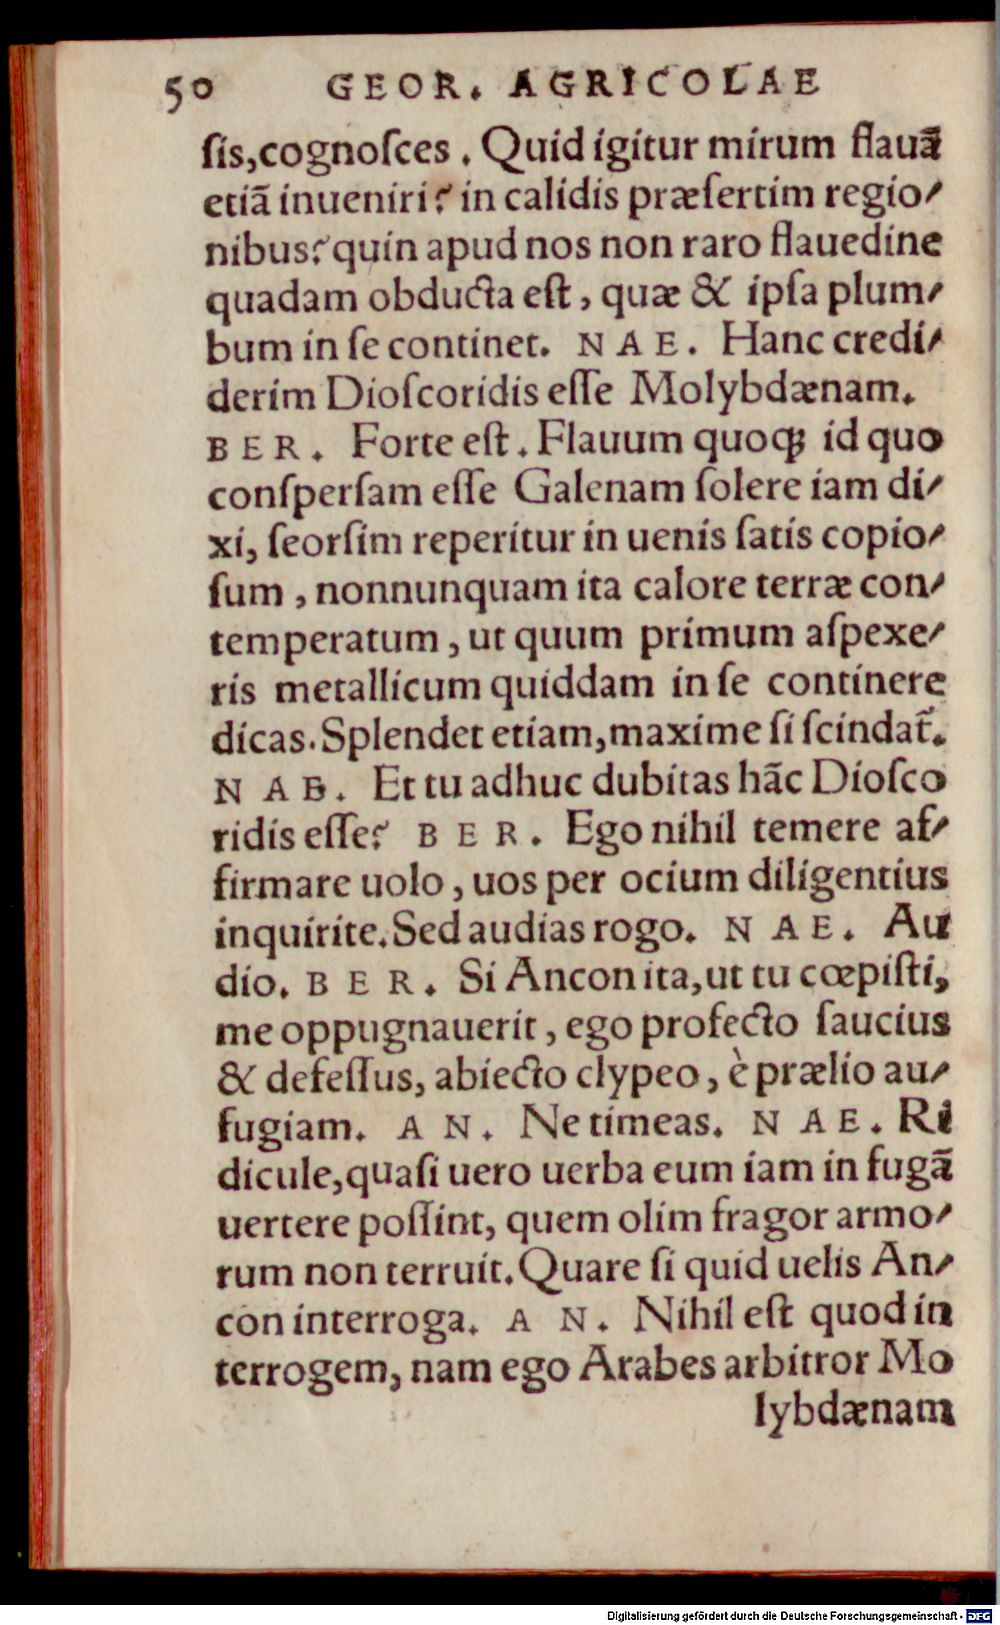 50 GEOR. AGRICOLAE
ſis,cognoſces. Quid igitur mirum flauã
etiã inueniri? in calidis præſertim regio-
nibus? quin apud nos non raro flauedine
quadam obducta eſt, quæ & ipſa plum-
bum in ſe continet. NAE. Hanc credi-
derim Dioſcoridis eſſe Molybdænam.
BER. Forte eſt. Flauum quoqꝫ id quo
conſperſam eſſe Galenam ſolere iam di-
xi, ſeorſim reperitur in uenis ſatis copio-
ſum, nonnunquam ita calore terræ con-
temperatum, ut quum primum aſpexe-
ris metallicum quiddam in ſe continere
dicas. Splendet etiam, maxime ſi ſcindat̃.
NAE. Et tu adhuc dubitas hãc Dioſco
ridis eſſe? BER. Ego nihil temere af-
firmare uolo, uos per ocium diligentius
inquirite. Sed audias rogo. NAE. Au
dio. BER. Si Ancon ita, ut tu cœpiſti,
me oppugnauerit, ego profecto ſaucius
& defeſſus, abiecto clypeo, è prælio au-
fugiam. AN. Ne timeas. NAE. Ri
dicule, quaſi uero uerba eum iam in fugã
uertere poſſint, quem olim fragor armo-
rum non terruit. Quare ſi quid uelis An-
con interroga. AN. Nihil eſt quod in
terrogem, nam ego Arabes arbitror Mo
lybdænam
Digitalisierung gefördert durch die Deutsche Forschungsgemeinschaft - DFG